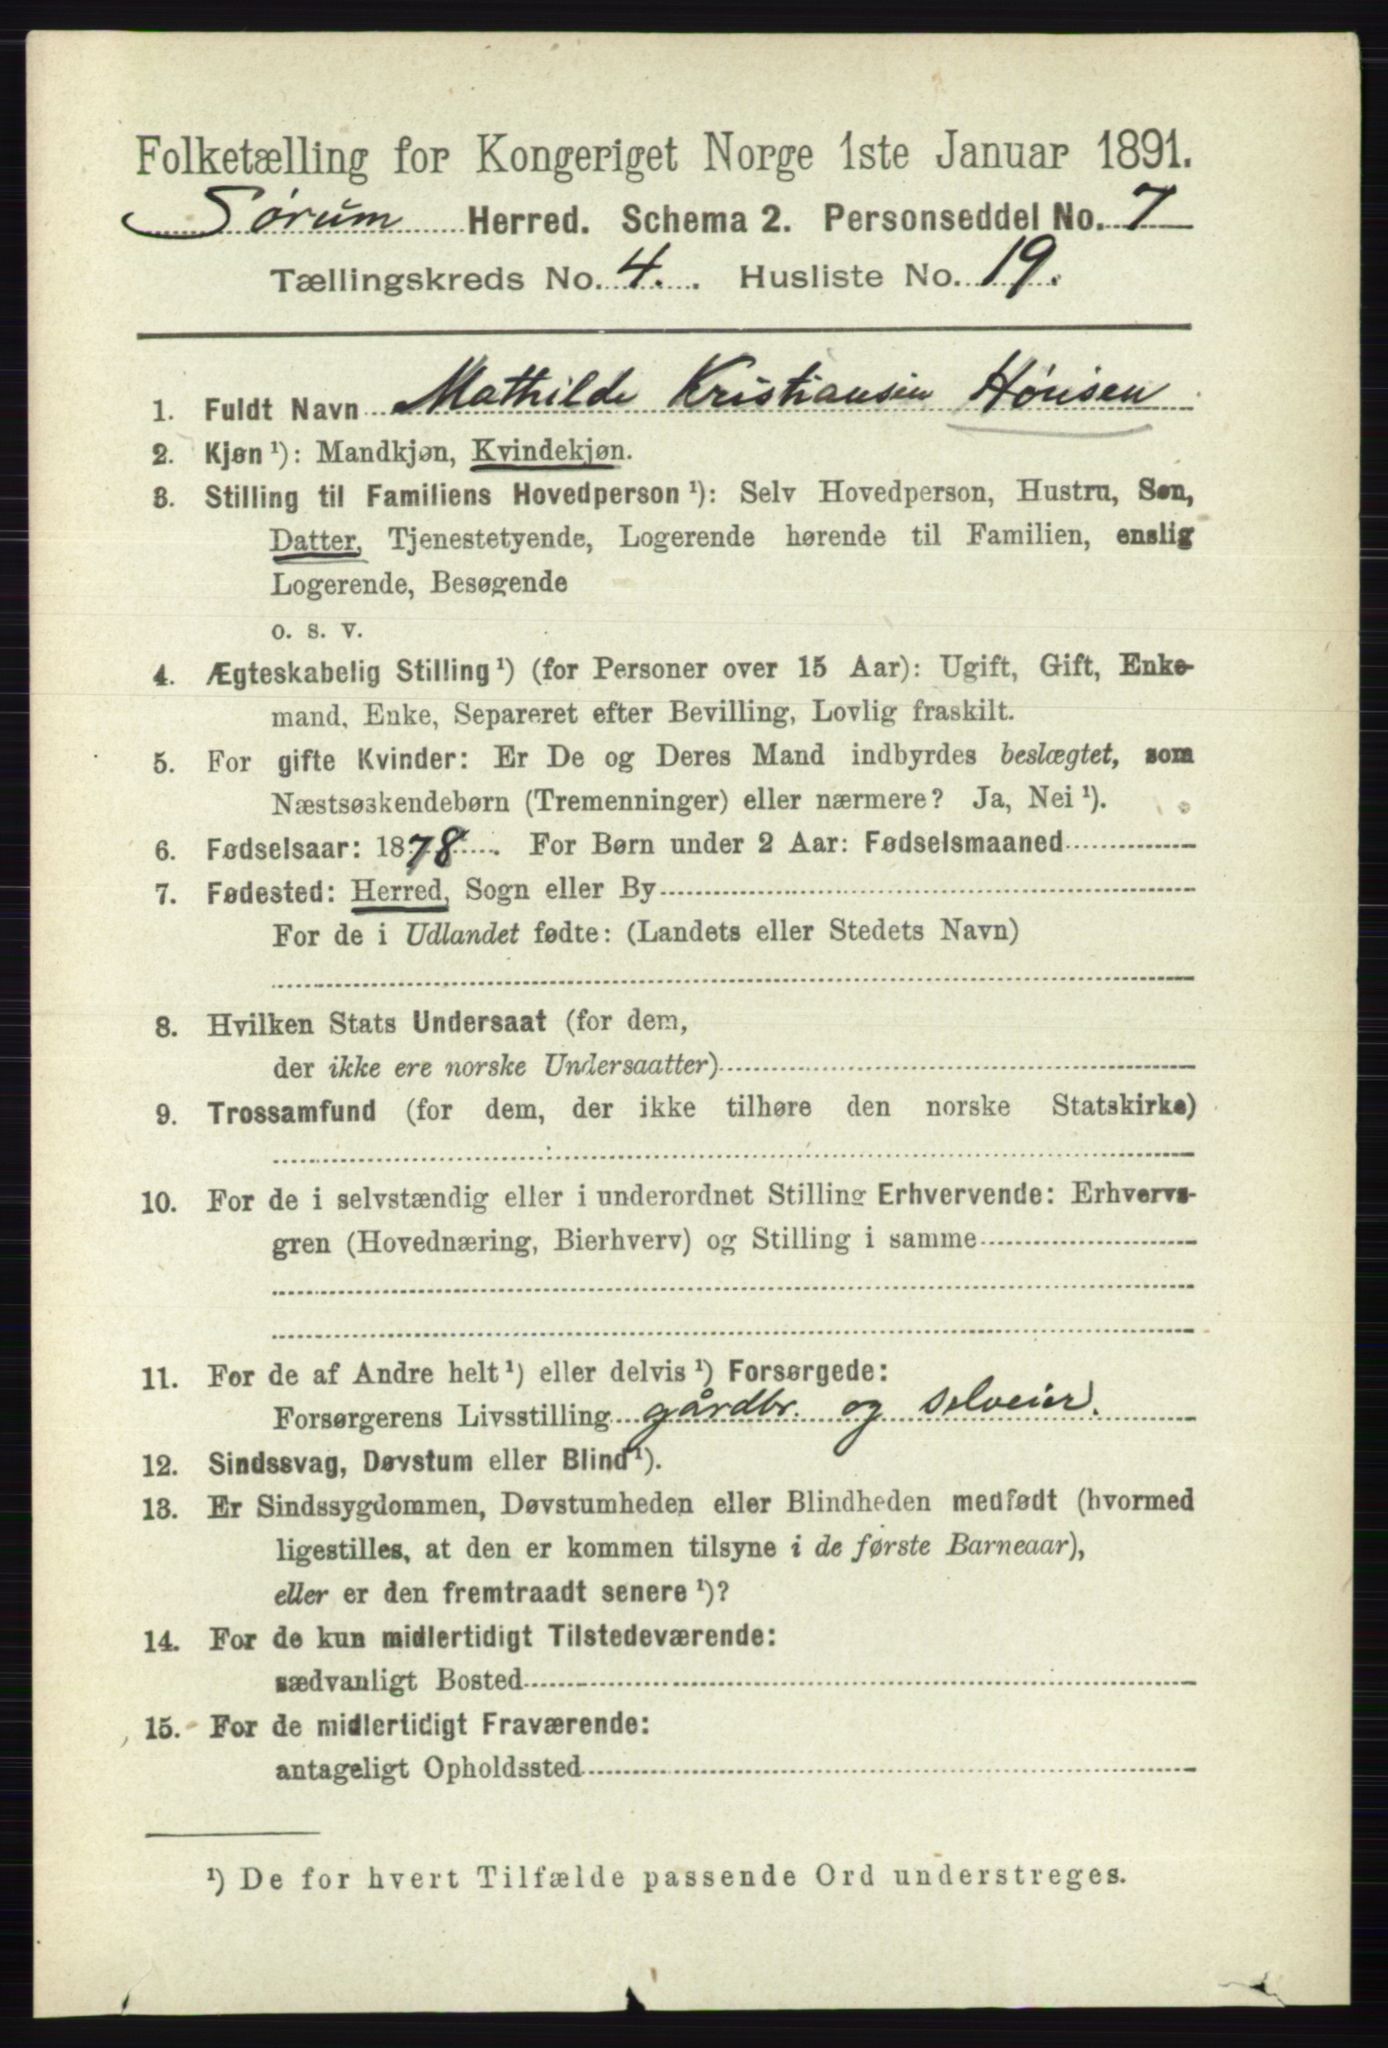 Folketælling for Kongeriget Norge 1ste Januar 1891.
Sørum Herred. Schema 2. Personseddel No. 7
Tællingskreds No. 4. Husliste No. 19.
1. Fuldt Navn Mathilde Kristiansen Hønsen
2. Kjøn ¹): Mandkjøn, Kvindekjøn.
3. Stilling til Familiens Hovedperson ¹): Selv Hovedperson, Hustru, Søn,
Datter, Tjenestetyende, Logerende hørende til Familien, enslig
Logerende, Besøgende
o. s. v.
4. Ægteskabelig Stilling ¹) (for Personer over 15 Aar): Ugift, Gift, Enke-
mand, Enke, Separeret efter Bevilling, Lovlig fraskilt.
5. For gifte Kvinder: Er De og Deres Mand indbyrdes beslægtet, som
Næstsøskendebørn (Tremenninger) eller nærmere? Ja, Nei ¹).
6. Fødselsaar: 1878. For Børn under 2 Aar: Fødselsmaaned
7. Fødested: Herred, Sogn eller By
For de i Udlandet fødte: (Landets eller Stedets Navn)
8. Hvilken Stats Undersaat (for dem,
der ikke ere norske Undersaatter)
9. Trossamfund (for dem, der ikke tilhøre den norske Statskirke)
10. For de i selvstændig eller i underordnet Stilling Erhvervende: Erhvervs-
gren (Hovednæring, Bierhverv) og Stilling i samme
11. For de af Andre helt ¹) eller delvis ¹) Forsørgede:
Forsørgerens Livsstilling gårdbr. og selveier.
12. Sindssvag, Døvstum eller Blind ¹).
13. Er Sindssygdommen, Døvstumheden eller Blindheden medfødt (hvormed
ligestilles, at den er kommen tilsyne i de første Barneaar),
eller er den fremtraadt senere ¹)?
14. For de kun midlertidigt Tilstedeværende:
sædvanligt Bosted
15. For de midlertidigt Fraværende:
antageligt Opholdssted
¹) De for hvert Tilfælde passende Ord understreges.